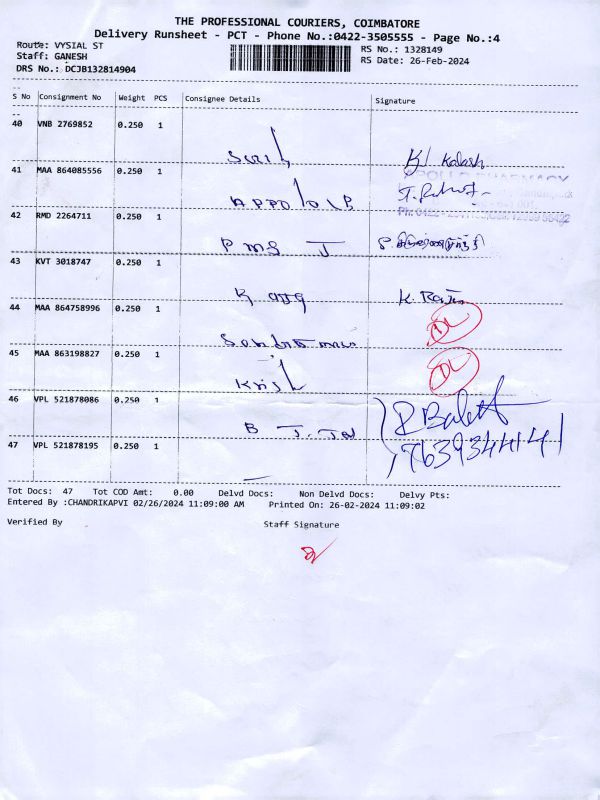 THE PROFESSIONAL COURIERS, COIMBATORE
Delivery Runsheet - PCT - Phone No.:0422-3505555 - Page No.:4
Route: VYSIAL ST
RS No.: 1328149
Staff: GANESH
RS Date: 26-Feb-2024
DRS No.: DCJB132814904
S No Consignment No Weight PCS Consignee Details Signature
40 VNB 2769852 0.250 1
K/ Kalash
41 MAA 864085556 0.250 1
APOLLO PHARMACY
42 RMD 2264711 0.250 1
PMS J
43 KVT 3018747 0.250 1
K. Raju
44 MAA 864758996 0.250 1
DL
45 MAA 863198827 0.250 1
DL
46 VPL 521878086 0.250 1
B J. Jai
7639344141
47 VPL 521878195 0.250 1
Tot Docs: 47 Tot COD Amt: 0.00 Delvd Docs: Non Delvd Docs: Delvy Pts:
Entered By :CHANDRIKAPVI 02/26/2024 11:09:00 AM Printed On: 26-02-2024 11:09:02
Verified By Staff Signature